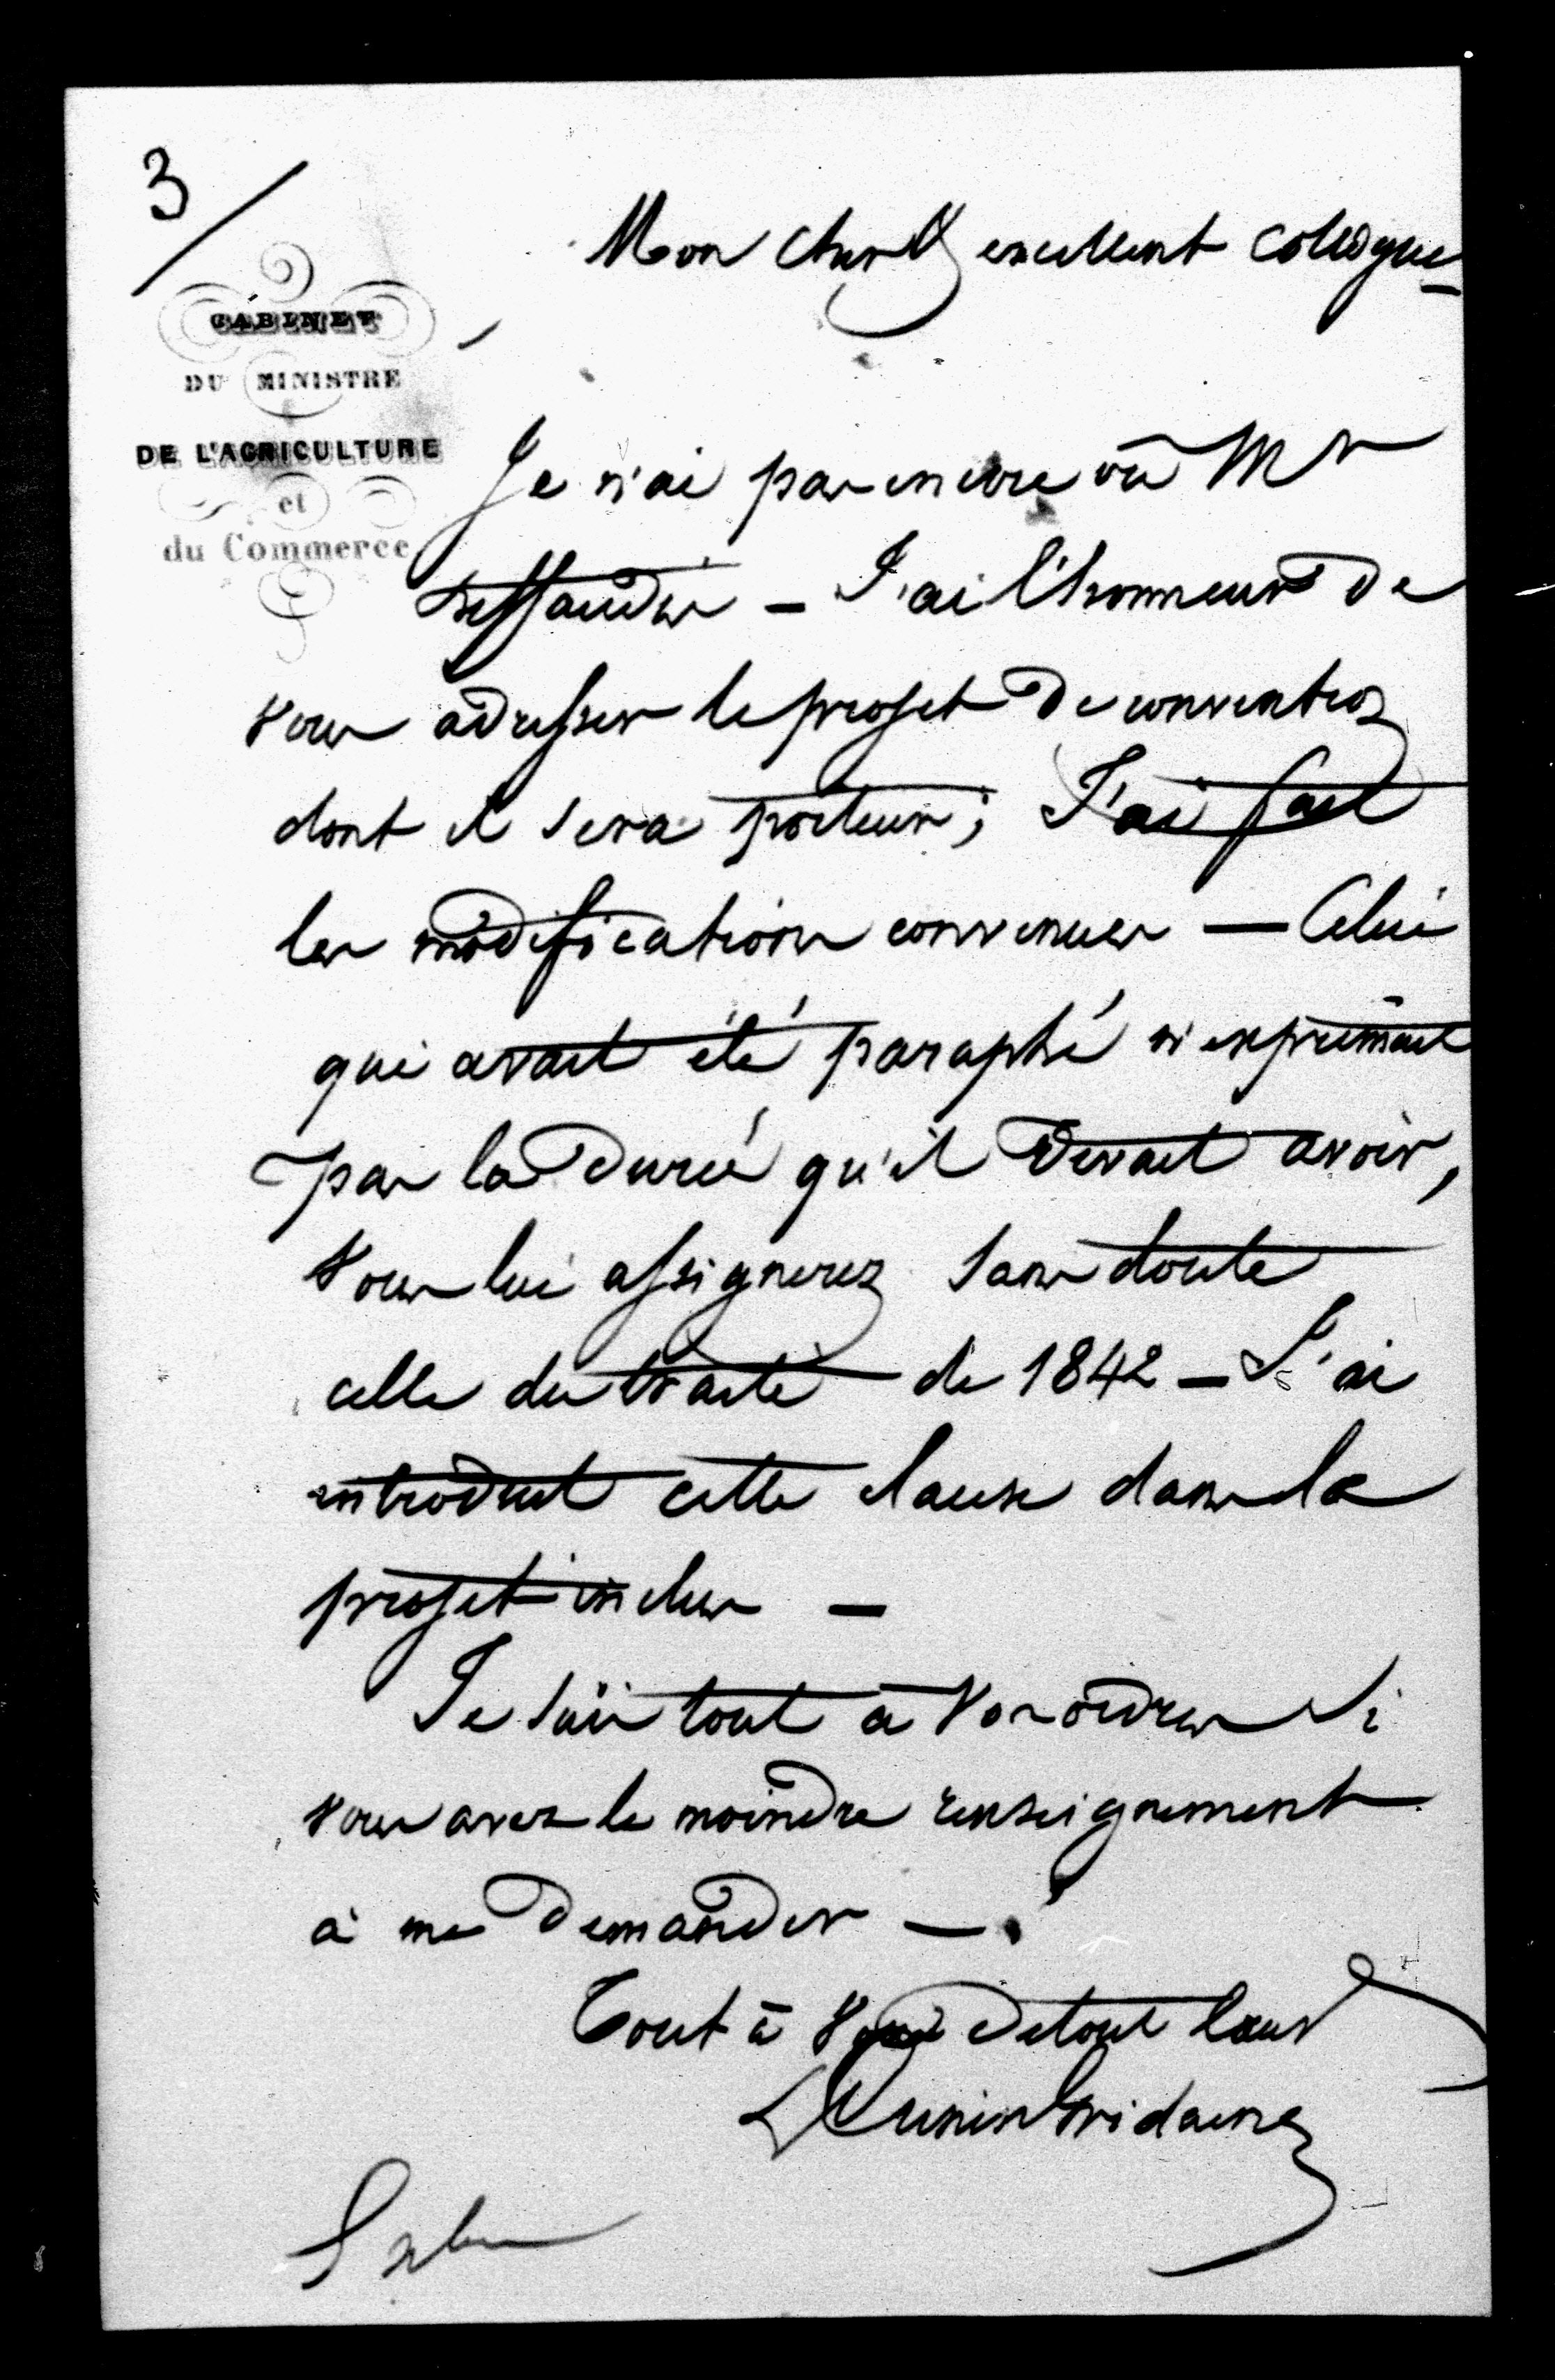 3
Mon cher & excellent collègue
CABINET
DU MINISTRE
DE L'AGRICULTURE
et
du Commerce
Je n'ai pas encore vu Mr
– J'ai l'honneur de
vous adresser le projet de convention
dont il sera porteur ; J'ai fait
les modifications convenues – Celui
qui avait été paraphé n'exprimait
pas la durée qu'il devait avoir,
vous lui assignerez sans doute
celle du traité de 1842 – J'ai
introduit cette clause dans le
projet inclus –
Je suis tout à vos ordres si
vous avez le moindre renseignement
à me demander –
Tout à vous de tout cœur
L Cunin Gridaine